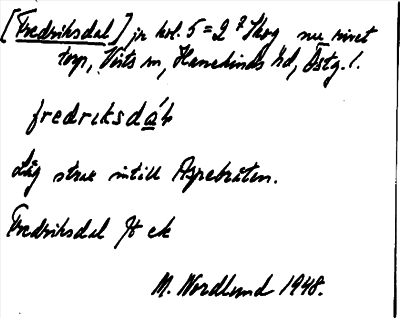 [Fredriksdal] jr kol. 5 = 2 ? Skog nu rivet
torp, Vists sn, Hanekinds hd, Östg. l.
fredriksdáḷ
Låg strax intill Agrebråten.
Fredriksdal Jt ek
M. Nordlund 1948.